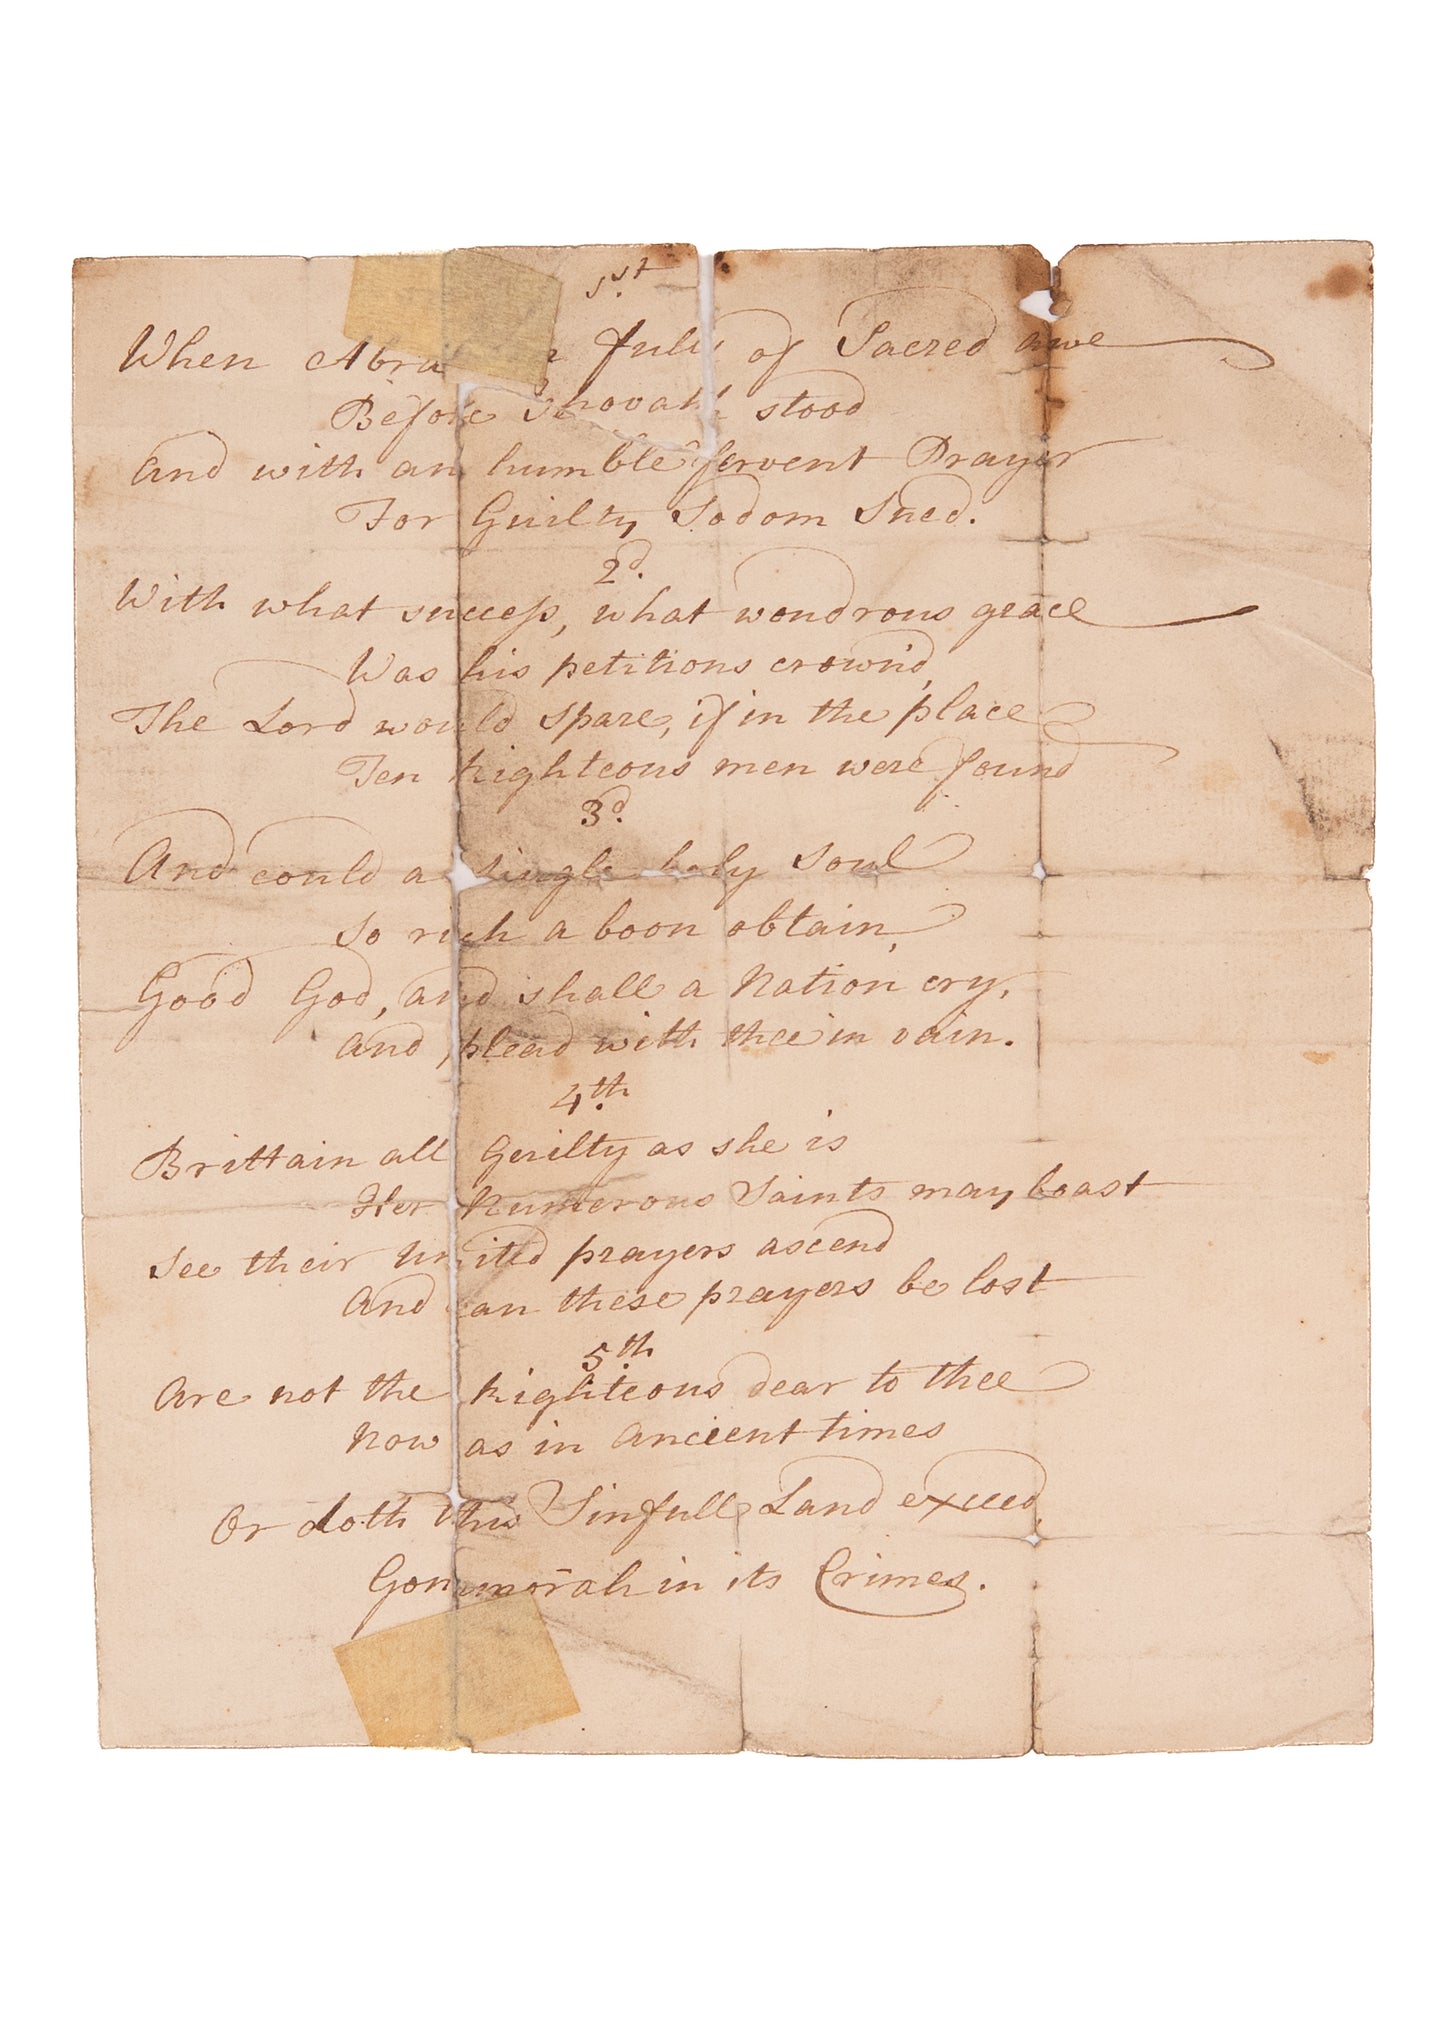 1st
When Abra full of Sacred awe
Before Jehovah stood
And with an humble fervent Prayer
For Guilty Sodom Sued.
2d.
With what success, what wondrous grace
Was his petitions crown'd,
The Lord would spare, if in the place
Ten Righteous men were found
3d.
And could a single holy Soul
So rich a boon obtain,
Good God, and shall a Nation cry,
And plead with thee in vain.
4th.
Brittain all Guilty as she is
Her Numerous Saints may boast
See their United prayers ascend
And can these prayers be lost
5th.
Are not the Righteous dear to thee
Now as in Ancient times
Or doth this Sinfull Land exceed,
Gommorah in its Crimes.